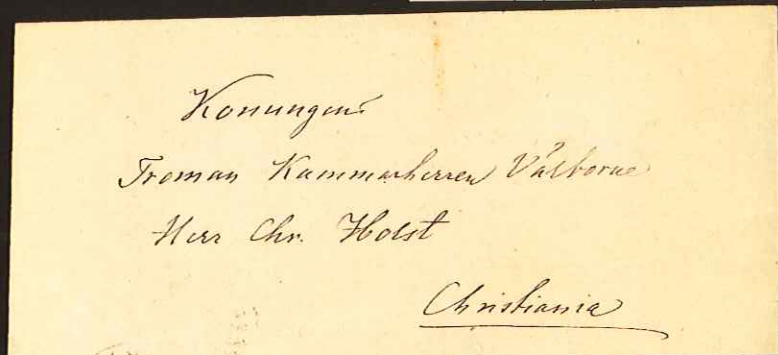 Konungens
Troman Kammarherren Välborne
Herr Chr. Holst
Christiania